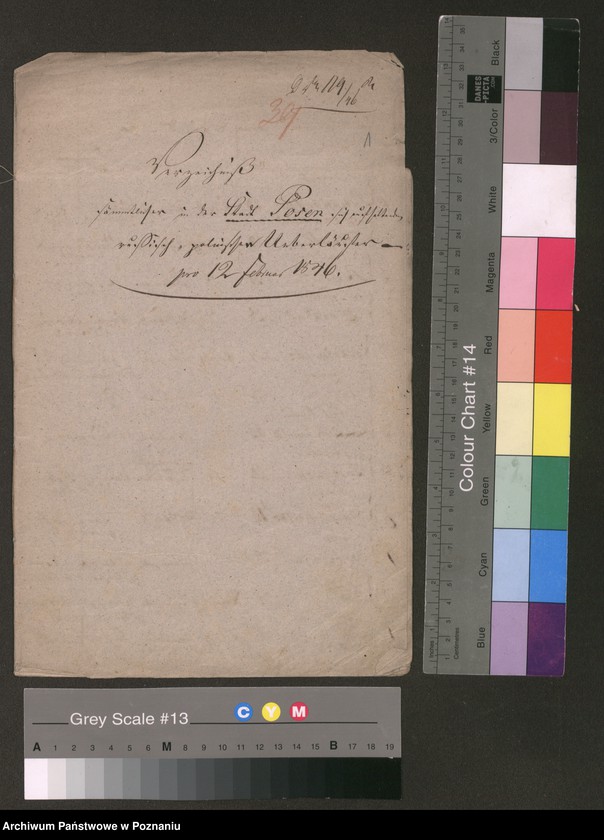 119/46
39
1
Verzeichniß
sämmtlicher in der Stadt Posen sich aufhaltenden
russisch-polnischer Ueberläufer
pro 12 Februar 1846.
Black
3/Color
White
Magenta
Red
Yellow
Green
Cyan
Blue
Colour Chart #14
DANES
-PICTA
.COM
Inches
Centimetres
Grey Scale #13
C Y M
A 1 2 3 4 5 6 M 8 9 10 11 12 13 14 15 B 17 18 19
Archiwum Państwowe w Poznaniu